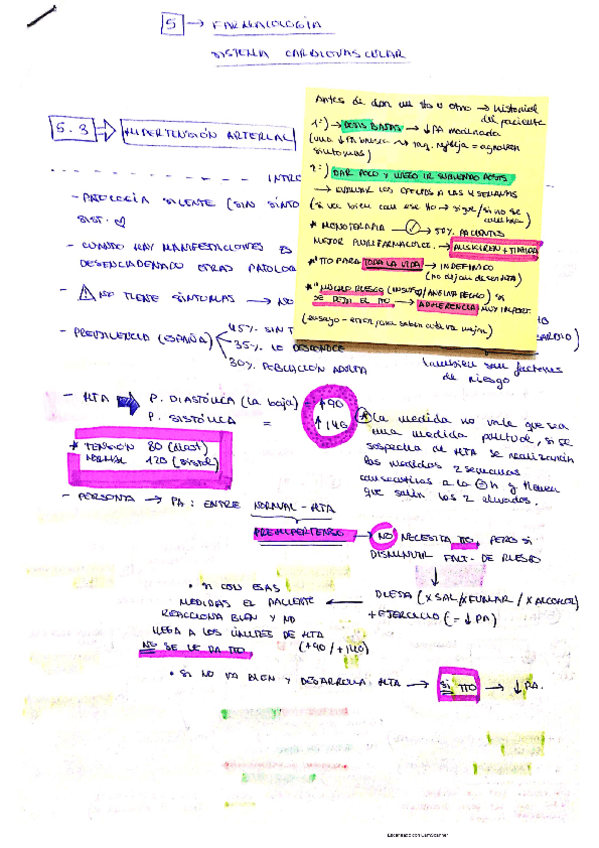 5 → FARMACOLOGÍA
SISTEMA CARDIOVASCULAR
5.3 HIPERTENSIÓN ARTERIAL
INTRO
- PATOLOGÍA SILENTE (SIN SINTO
SIST.
- CUANDO HAY MANIFESTACIONES ES
DESENCADENADO OTRAS PATOLO
- ! NO TIENE SÍNTOMAS → NO
- PREVALENCIA (ESPAÑA)
45% SIN T
35% LO DESCONOCE
30% POBLACIÓN ADULTA
Antes de dar un tto u otro → historial
del paciente
1º) → DOSIS BAJAS → ↓PA moderada
síntomas)
2º) DAR POCO Y LUEGO IR SUBIENDO DOSIS
→ EVALUAR LOS EFECTOS A LAS 4 SEMANAS
(si va bien con ese tto → sigue / si no se
cambia)
* MONOTERAPIA → 50% PACIENTES
MEJOR POLIFARMACOLOG. → ALISKIREN + TIAZIDA
* TTO PARA TODA LA VIDA → INDEFINIDO
SE DEJA EL TTO → ADHERENCIA MUY IMPORT.
CARDIO)
también son factores
de riesgo
- HTA P. DIASTÓLICA (la baja) = ↑90
P. SISTÓLICA = ↑140
* TENSIÓN 80 (diast)
NORMAL 120 (sistol)
* La medida no vale que sea
una medida puntual, si se
sospecha de HTA se realizarán
las medidas 2 semanas
consecutivas a la = h y tienen
que salir los 2 elevados.
- PERSONA → PA: ENTRE NORMAL - HTA
PREHIPERTENSO → NO NECESITA TTO, PERO SI
DISMINUIR FACT. DE RIESGO
DIETA (X SAL / X FUMAR / X ALCOHOL)
+ EJERCICIO (= ↓PA)
• SI CON ESAS
MEDIDAS EL PACIENTE
REACCIONA BIEN Y NO
LLEGA A LOS LÍMITES DE HTA
(+90 / +140)
NO SE LE DA TTO
• SI NO VA BIEN Y DESARROLLA HTA → SI TTO → ↓PA.
Escaneado con CamScanner